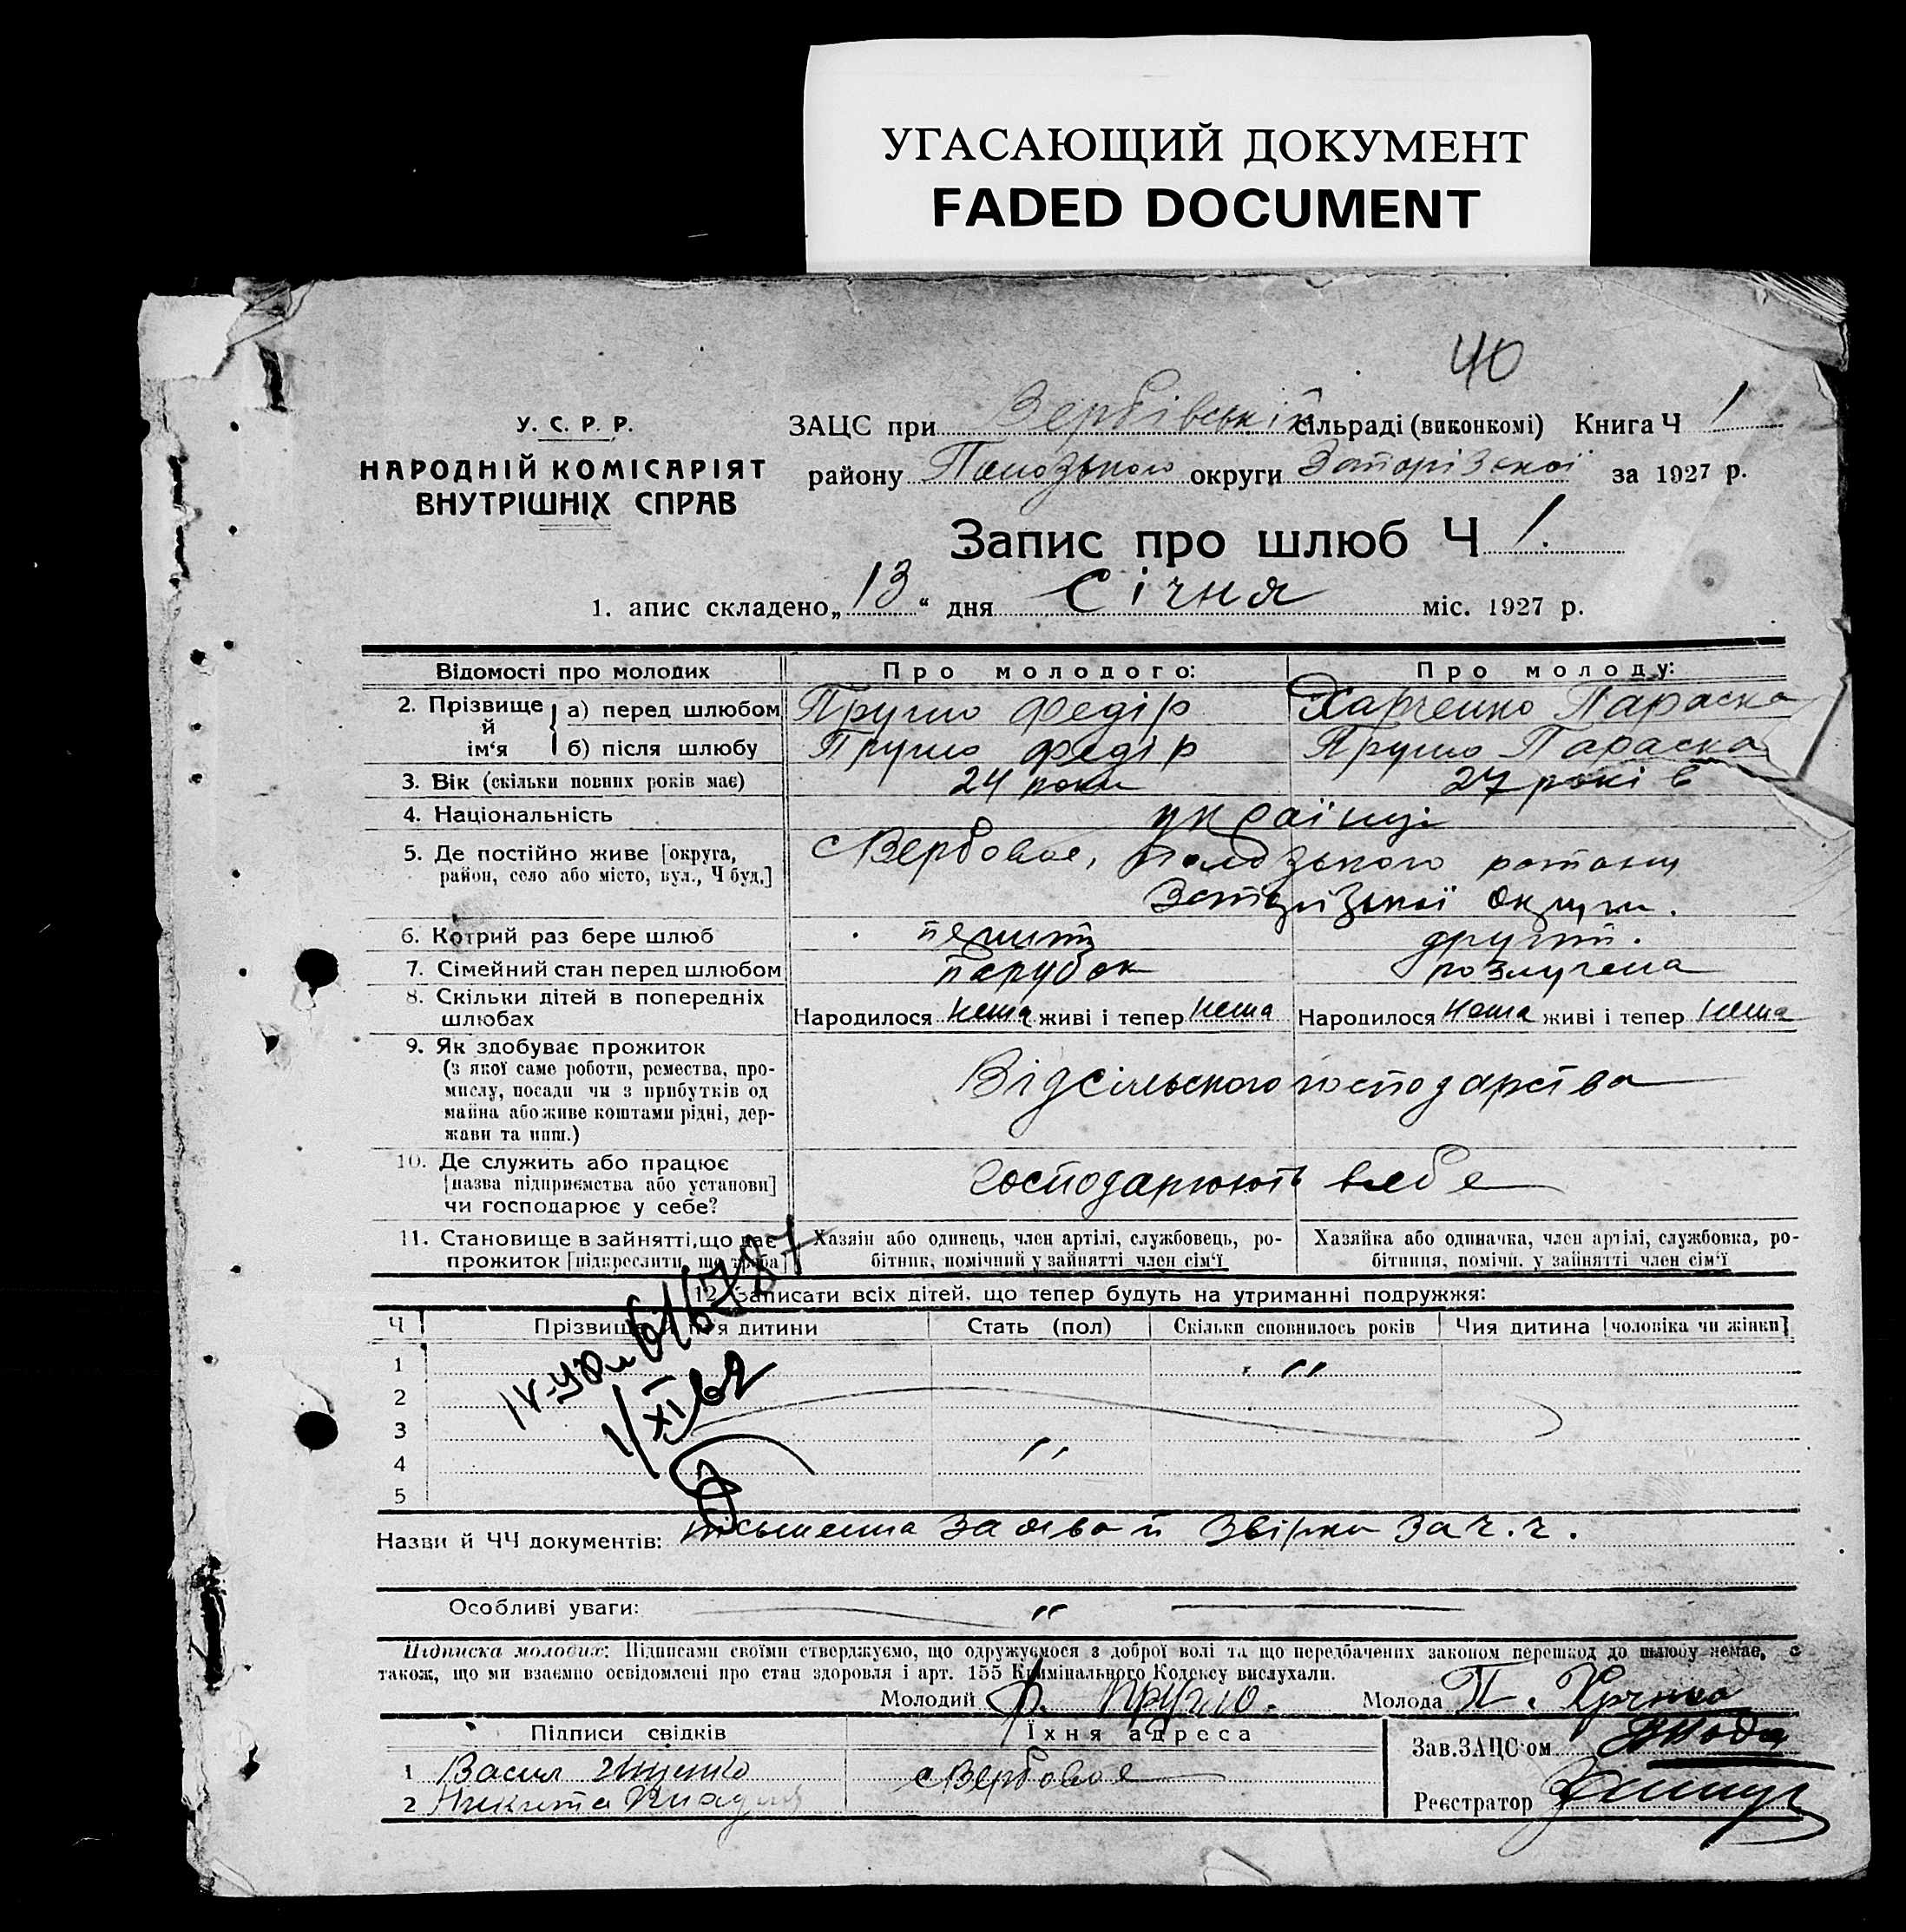 УГАСАЮЩИЙ ДОКУМЕНТ
FADED DOCUMENT
40
У. С. Р. Р.
НАРОДНІЙ КОМІСАРІЯТ
ВНУТРІШНІХ СПРАВ
ЗАЦС при Вербівській сільраді (виконкомі) Книга Ч 1
району Пологського округи Запорізької за 1927 р.
Запис про шлюб Ч 1.
1. апис складено „13“ дня Січня міс. 1927 р.
Відомості про молодих Про молодого: Про молоду:
2. Прізвище й ім‘я а) перед шлюбом Пругло Федір Харченко Параска
б) після шлюбу Пругло Федір Пругло Параска
3. Вік (скільки повних років має) 24 роки 27 років
4. Національність українці
5. Де постійно живе [округа, район, село або місто, вул., Ч буд.] с Вербовое,
округи.
6. Котрий раз бере шлюб перший другий.
7. Сімейний стан перед шлюбом парубок розлучена
8. Скільки дітей в попередніх шлюбах Народилося нема живі і тепер нема Народилося нема живі і тепер нема
9. Як здобуває прожиток
(з якої саме роботи, ремества, про-
мислу, посади чи з прибутків од
майна або живе коштами рідні, дер-
жави та инш.)
Від сільського господарства
10. Де служить або працює
[назва підприємства або установи]
чи господарює у себе?
Господарюють в себе
11. Становище в зайнятті, що дає прожиток [підкреслити, що треба]
Хазяін або одинець, член артілі, службовець, ро-
бітник, помічний у зайнятті член сім‘ї
Хазяйка або одиначка, член артілі, службовка, ро-
бітниця, помічн. у зайнятті член сім‘ї
12. Записати всіх дітей, що тепер будуть на утриманні подружжя:
Ч Прізвище й ім‘я дитини Стать (пол) Скільки сповнилось років Чия дитина [чоловіка чи жінки]
1 "
2
3
4 "
5
1/XI 62
Назви й ЧЧ документів: письменна заява й звірка за ч. ч.
Особливі уваги: "
Підписка молодих: Підписами своїми стверджуємо, що одружуємося з доброї волі та що передбачених законом перешкод до шлюбу немає, а
також, що ми взаємно освідомлені про стан здоровля і арт. 155 Кримінального Кодексу вислухали.
Молодий Ф. Пругло. Молода П.
Підписи свідків Їхня адреса
Зав. ЗАЦС‘ом
1 Васил с Вербовое
2 Никита
Реєстратор